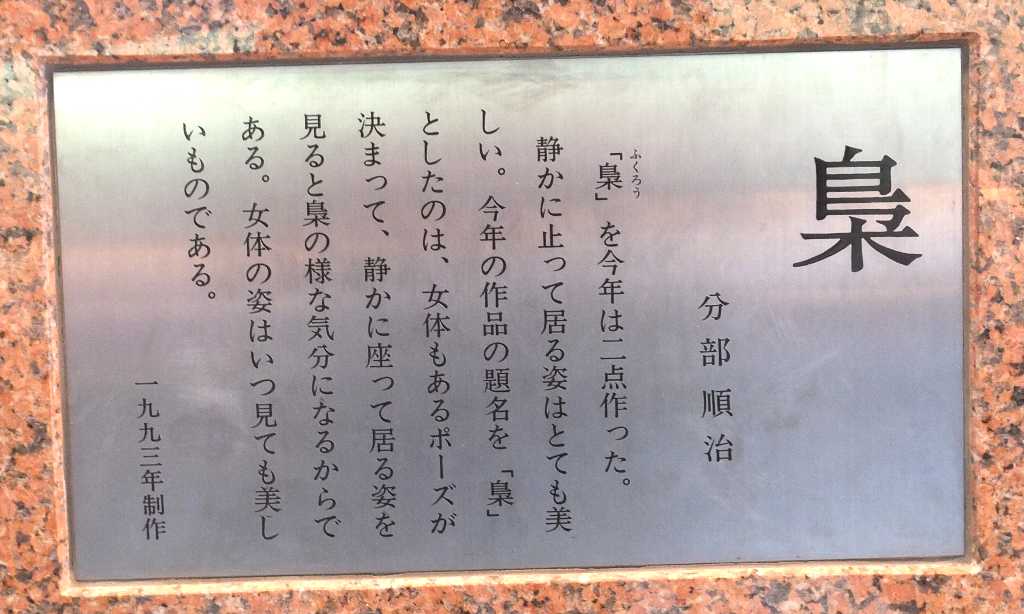 梟
分部順治
ふくろう
「梟」を今年は二点作った。
静かに止って居る姿はとても美
しい。今年の作品の題名を「梟」
としたのは、女体もあるポーズが
決まって、静かに座って居る姿を
見ると梟の様な気分になるからで
ある。女体の姿はいつ見ても美し
いものである。
一九九三年制作